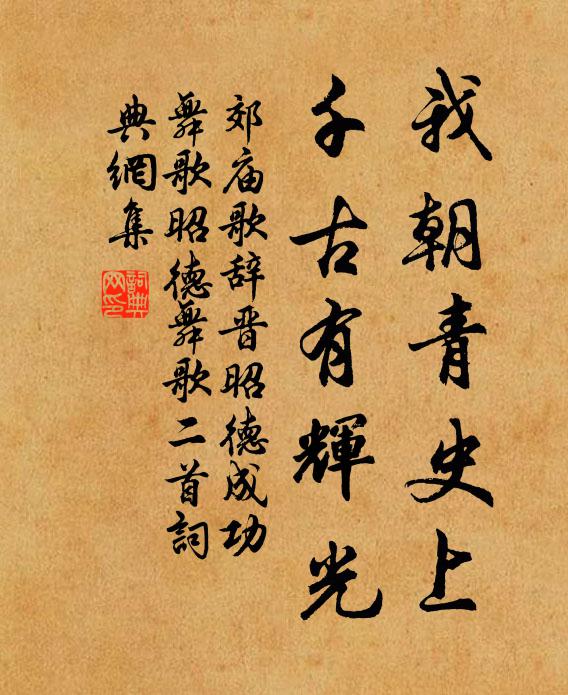 我朝青史上
千古有輝光
郊庙歌辞晋昭德成功
舞歌昭德舞歌二首詞
典網集
詞典
网印